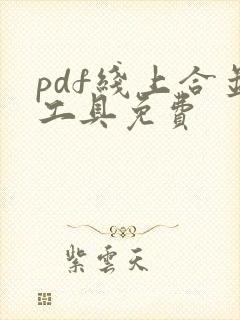 pdf綫上合並
工具免費
紫雲天